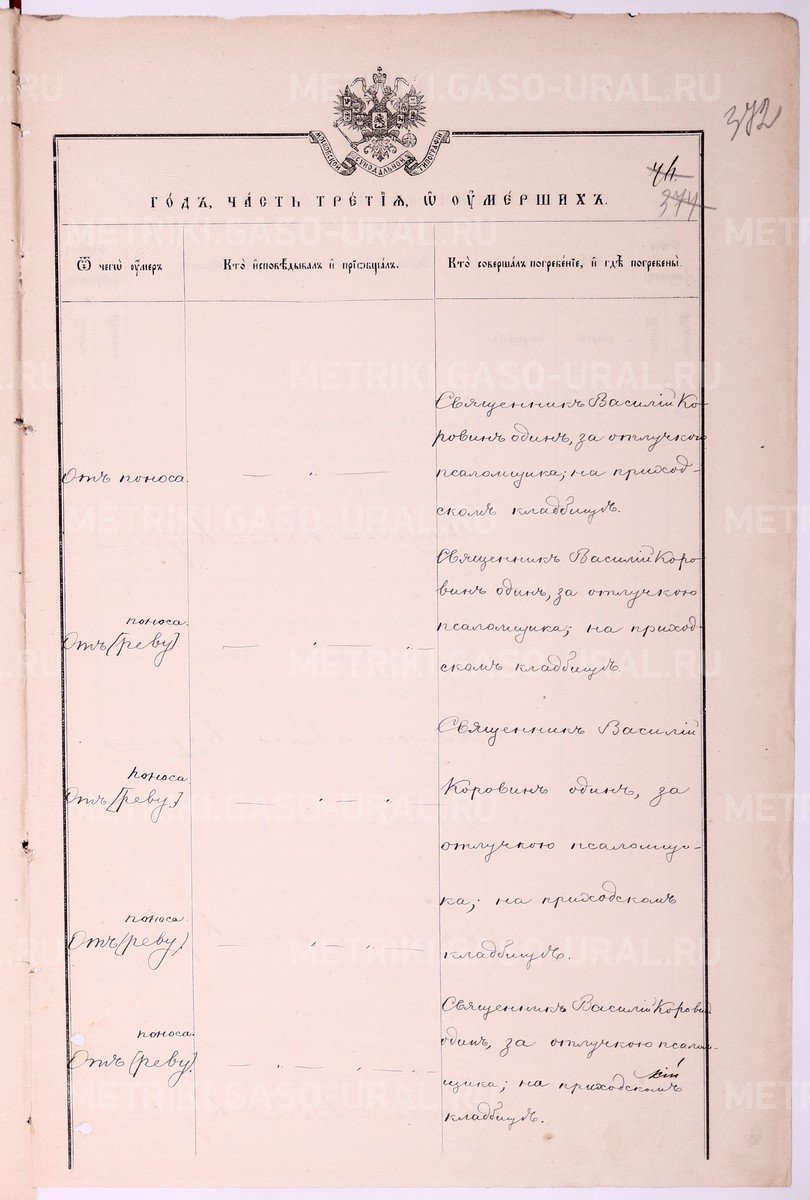 372
МОСКОВСКОЙ СѴНОДАЛЬНОЙ ТИПОГРАФІИ
374
ГО́ДЪ, ЧА́СТЬ ТРЕ́ТІѦ, Ѿ ОУ҆МЕ́РШИХЪ.
Ѿ чегѡ̀ оу҆́меръ
Кто̀ и҆сповѣ́дывалъ и҆ прїѡбща́лъ.
Кто̀ соверша́лъ погребе́нїе, и҆ гдѣ̀ погребены̀.
Отъ поноса.
Священникъ Василій Ко-
ровинъ одинъ, за отлучкою
псаломщика; на приход-
скомъ кладбищѣ.
поноса.
Отъ [реву]
Священникъ Василій Коро-
винъ одинъ, за отлучкою
псаломщика; на приход-
скомъ кладбищѣ.
поноса
Отъ [реву]
Священникъ Василій
Коровинъ одинъ, за
отлучкою псаломщи-
ка; на приходскомъ
кладбищѣ.
поноса.
Отъ (реву)
поноса.
Отъ (реву).
Священникъ Василій Коровин
одинъ, за отлучкою псалом-
щика; на приходскомъ
кладбищѣ.
METRIKI.GASO-URAL.RU